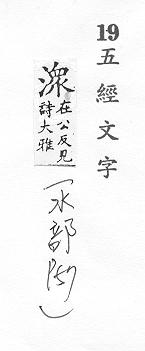 19 五經文字
潨
在公反見
詩大雅
(水部 P57)